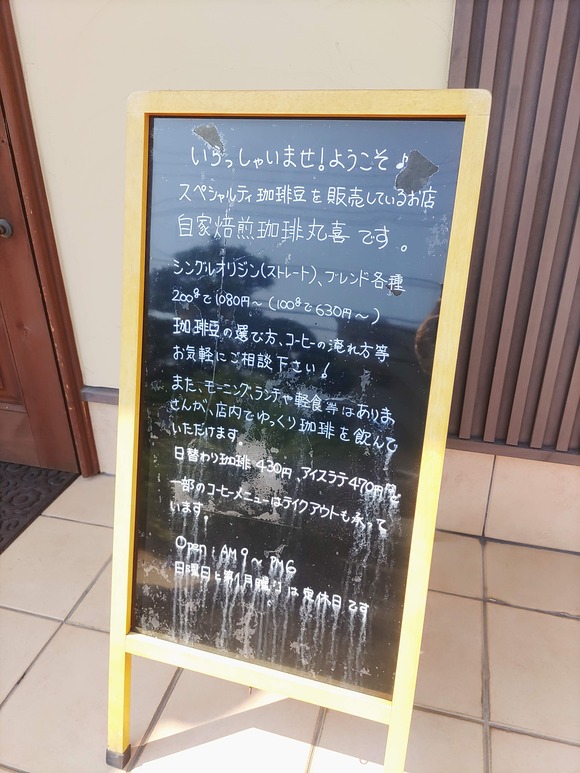 いらっしゃいませ!ようこそ♪
スペシャルティ珈琲豆を販売しているお店
自家焙煎珈琲丸喜です。
シングルオリジン(ストレート)、ブレンド各種
200gで1080円～(100gで630円～)
珈琲豆の選び方、コーヒーの淹れ方等
お気軽にご相談下さい!
また、モーニング、ランチや軽食等はありま
せんが、店内でゆっくり珈琲を飲んで
いただけます。
日替わり珈琲430円、アイスラテ470円
一部のコーヒーメニューはテイクアウトも承って
います!
Open:AM9～PM6
日曜日と第1月曜日は定休日です